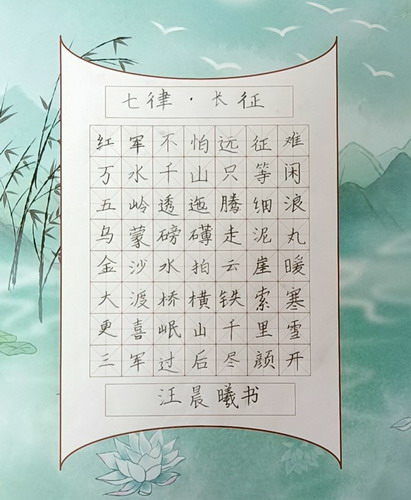 七律·长征
红军不怕远征难
万水千山只等闲
五岭逶迤腾细浪
乌蒙磅礴走泥丸
金沙水拍云崖暖
大渡桥横铁索寒
更喜岷山千里雪
三军过后尽颜开
汪晨曦书